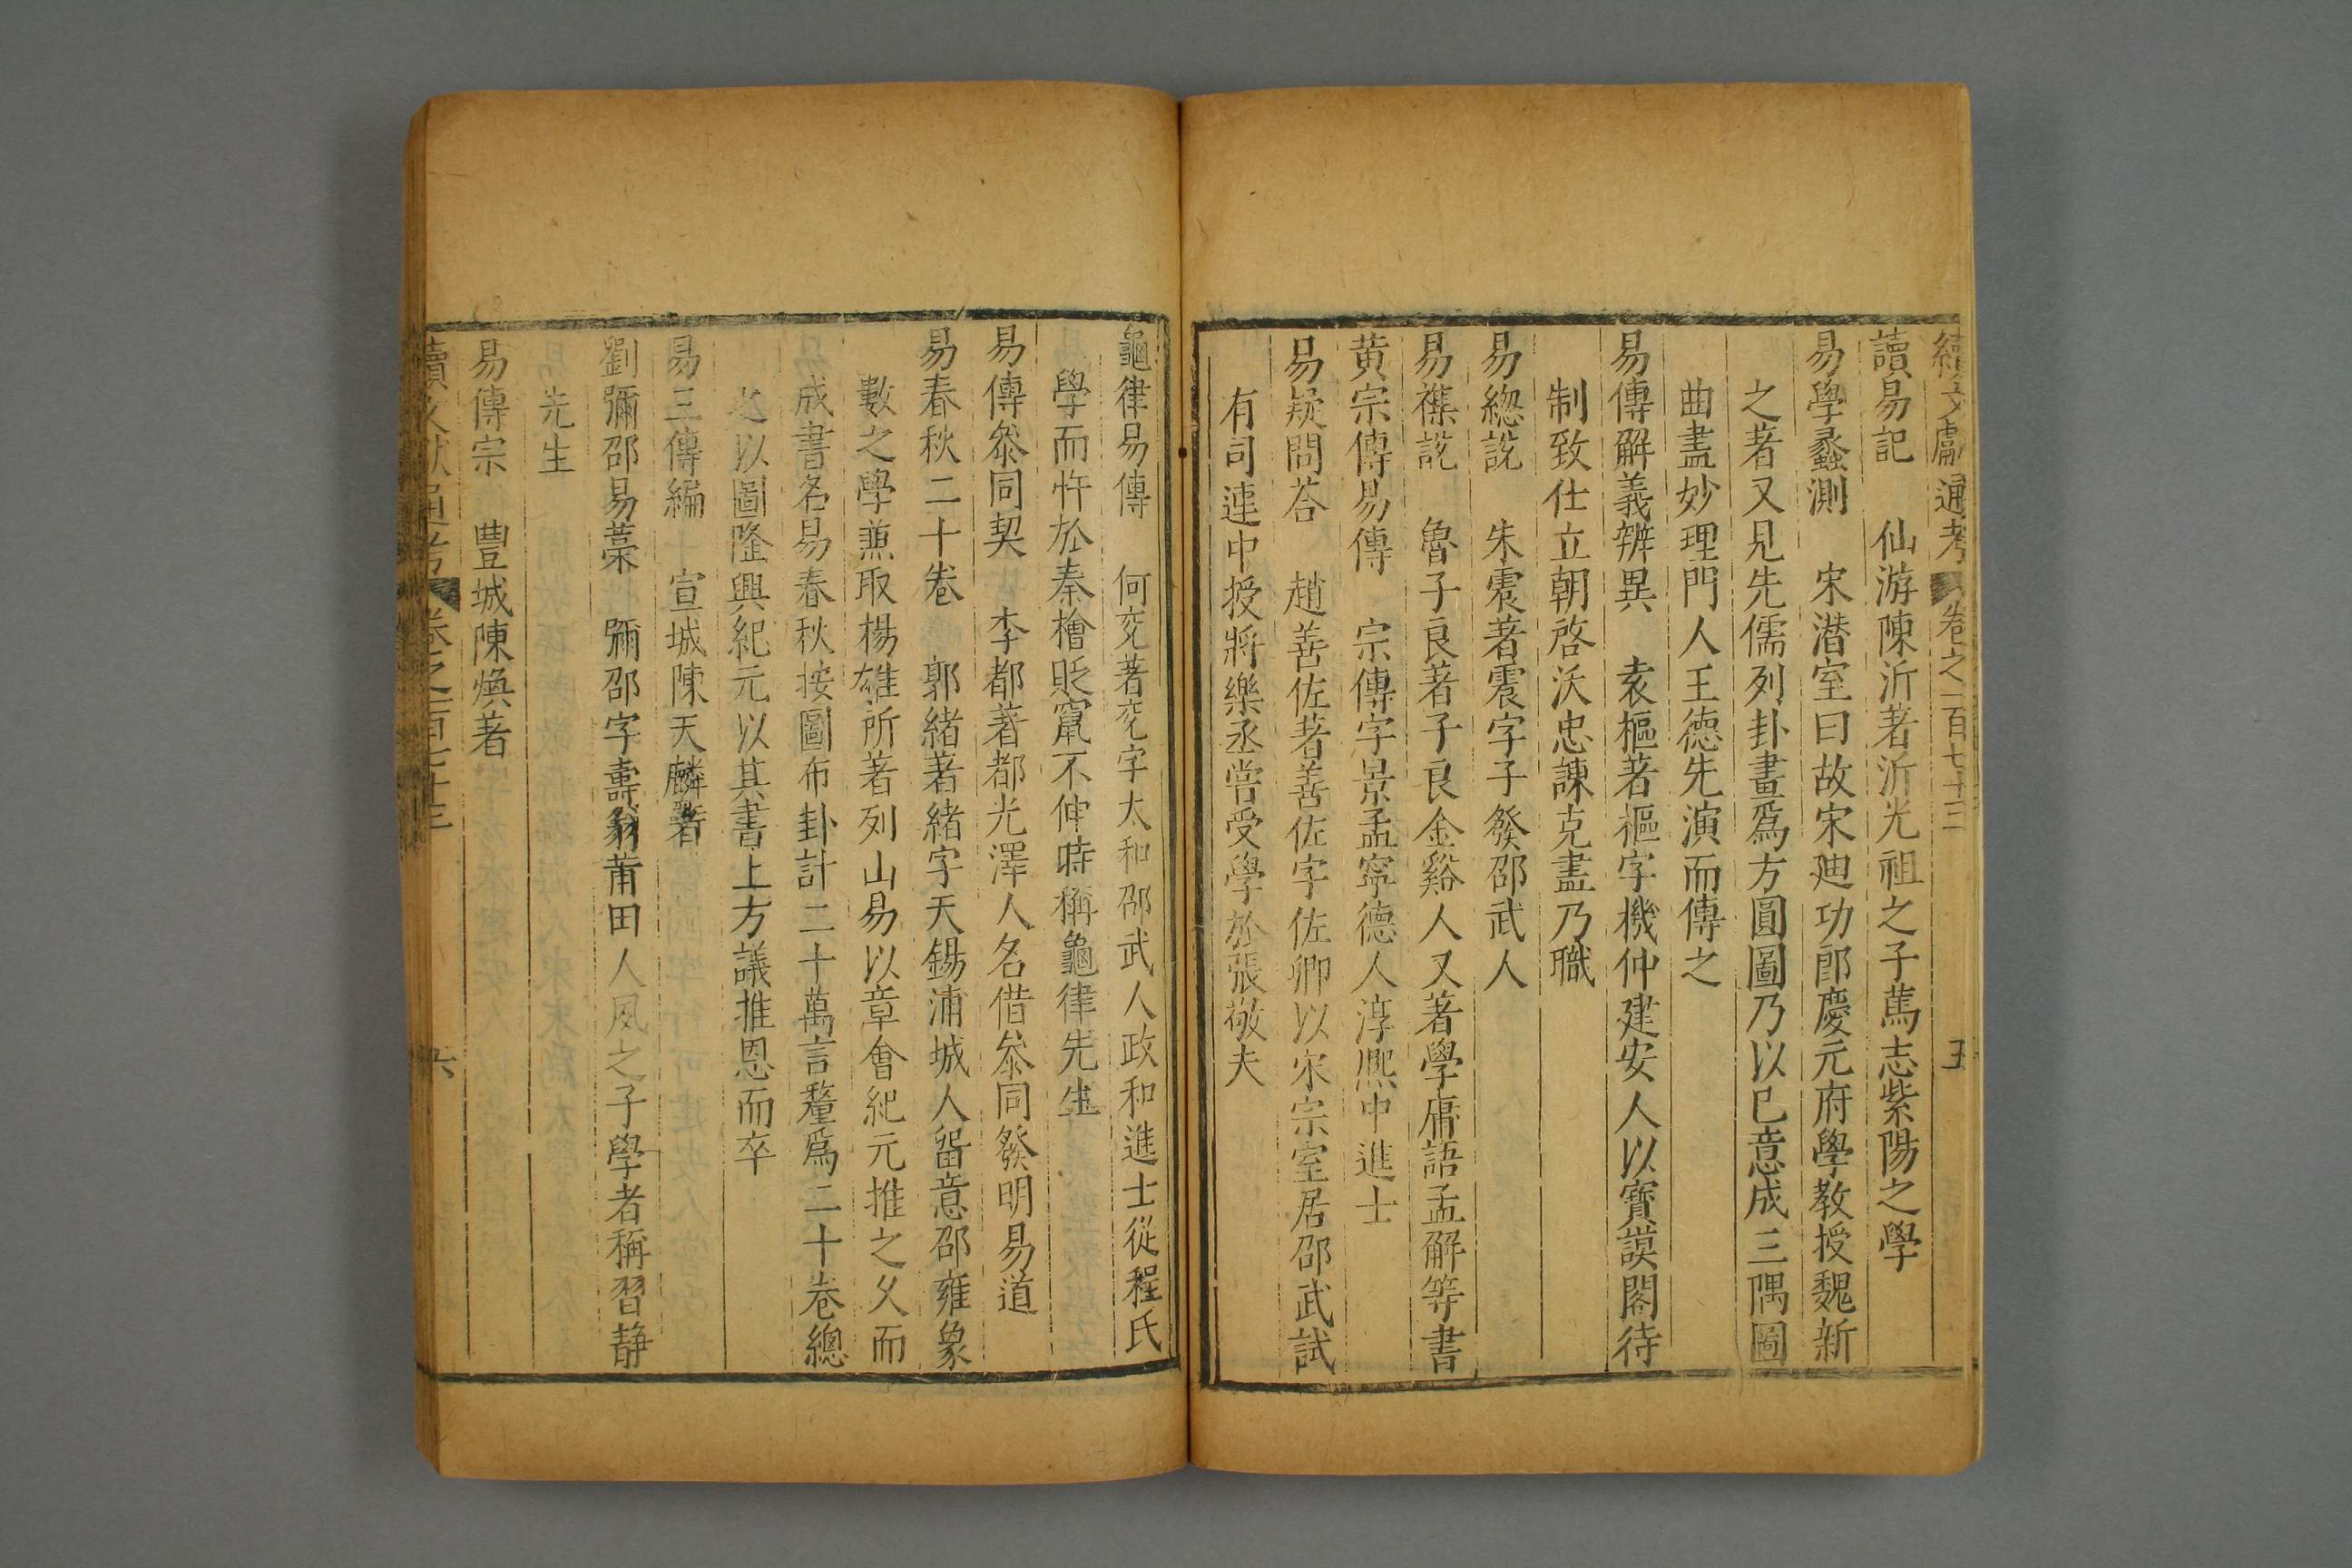 續文獻通考 卷之一百七十三 五
讀易記 仙游陳沂著沂光祖之子萬志紫陽之學
易學蠡測 宋濳室曰故宋廸功郎慶元府學教授魏新
之著又見先儒列卦畫爲方圓圖乃以已意成三隅圖
曲盡妙理門人王德先演而傳之
易傳解義辨異 袁樞著樞字機仲建安人以寳謨閣待
制致仕立朝啓沃忠諫克盡乃職
易緫說 朱震著震字子發邵武人
易襍說 魯子良著子良金谿人又著學庸語孟解等書
黄宗傳易傳 宗傳字景孟寧德人淳熙中進士
易疑問荅 趙善佐著善佐字佐卿以宋宗室居邵武試
有司連中授將樂丞嘗受學於張敬夫
龜律易傳 何兊著兊字太和邵武人政和進士從程氏
學而忤於秦檜貶竄不伸時稱龜律先生
易傳叅同契 李都著都光澤人名借叅同發明易道
易春秋二十卷 郭緒著緒字天錫浦城人留意邵雍象
數之學兼取楊雄所著列山易以章會紀元推之久而
成書名易春秋按圖布卦計二十萬言釐爲二十卷總
之以圖隆興紀元以其書上方議推恩而卒
易三傳編 宣城陳天麟著
劉彌邵易藁 彌邵字壽翁莆田人夙之子學者稱習静
先生
易傳宗 豐城陳煥著
續文獻通考 卷之一百七十三 六